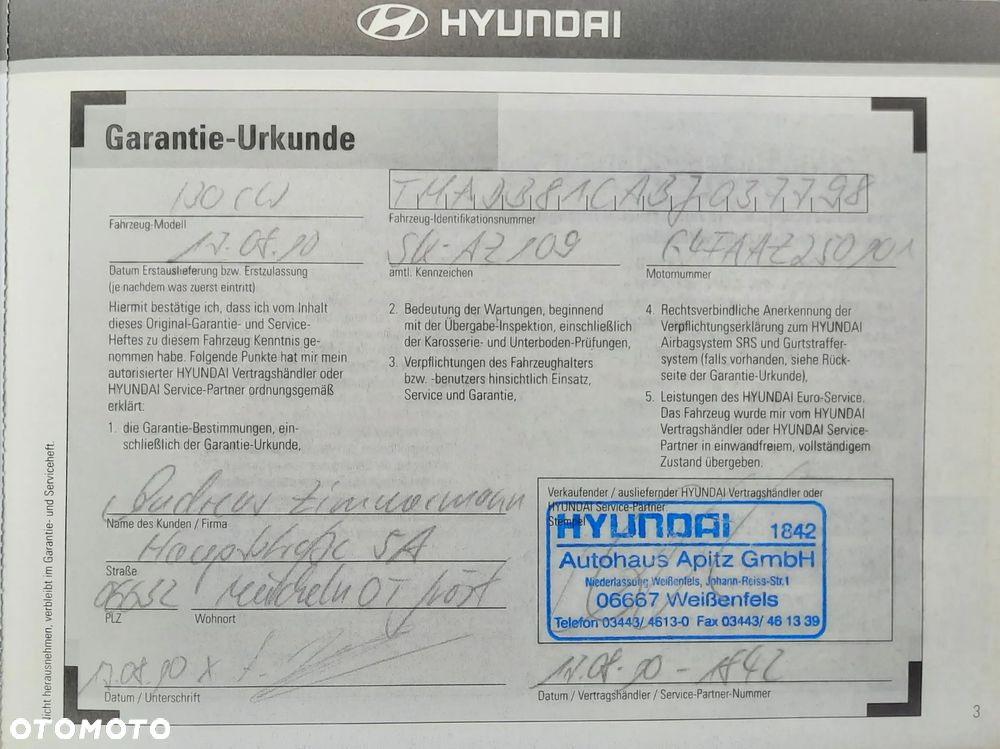 HYUNDAI
Garantie-Urkunde
Fahrzeug-Modell
17.08.10
Datum Erstauslieferung bzw. Erstzulassung
(je nachdem was zuerst eintritt)
TMADB81CABJ037798
Fahrzeug-Identifikationsnummer
SK-AZ109
amtl. Kennzeichen
Motornummer
Hiermit bestätige ich, dass ich vom Inhalt
dieses Original-Garantie- und Service-
Heftes zu diesem Fahrzeug Kenntnis ge-
nommen habe. Folgende Punkte hat mir mein
autorisierter HYUNDAI Vertragshändler oder
HYUNDAI Service-Partner ordnungsgemäß
erklärt:
1. die Garantie-Bestimmungen, ein-
schließlich der Garantie-Urkunde,
2. Bedeutung der Wartungen, beginnend
mit der Übergabe-Inspektion, einschließlich
der Karosserie- und Unterboden-Prüfungen,
3. Verpflichtungen des Fahrzeughalters
bzw. -benutzers hinsichtlich Einsatz,
Service und Garantie,
4. Rechtsverbindliche Anerkennung der
Verpflichtungserklärung zum HYUNDAI
Airbagsystem SRS und Gurtstraffer-
system (falls vorhanden, siehe Rück-
seite der Garantie-Urkunde),
5. Leistungen des HYUNDAI Euro-Service.
Das Fahrzeug wurde mir vom HYUNDAI
Vertragshändler oder HYUNDAI Service-
Partner in einwandfreiem, vollständigem
Zustand übergeben.
Andreas Zimmermann
Name des Kunden / Firma
Hauptstraße 5A
Straße
06632
PLZ
Wohnort
17.08.10 x
Datum / Unterschrift
Verkaufender / ausliefernder HYUNDAI Vertragshändler oder
HYUNDAI Service-Partner
Stempel
HYUNDAI 1842
Autohaus Apitz GmbH
Niederlassung Weißenfels, Johann-Reiss-Str.1
06667 Weißenfels
Telefon 03443/ 4613-0 Fax 03443/ 46 13 39
17.08.10 - 1842
Datum / Vertragshändler / Service-Partner-Nummer
nicht herausnehmen, verbleibt im Garantie- und Serviceheft.
3
OTOMOTO